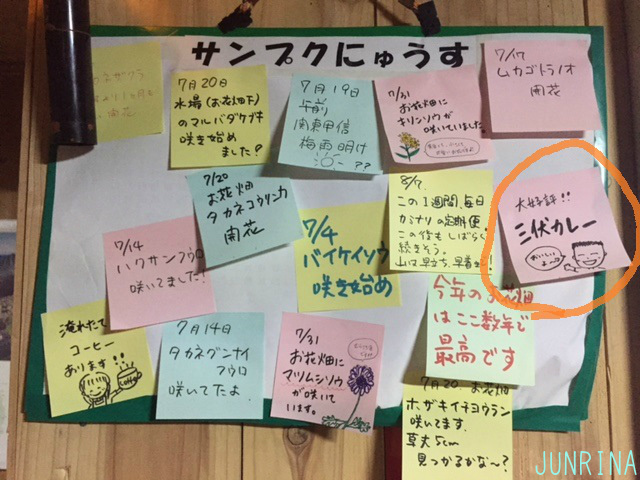 サンプクにゅうす
7月20日
水場(お花畑下)
のマルバダケブキ
咲き始め
ました?
7月19日
午前
関東甲信
梅雨明け
??
7/31
お花畑に
キリンソウが
咲いていました。
7/17
ムカゴトラノオ
開花
7/20
お花畑
タカネコウリンカ
開花
8/7
この1週間、毎日
カミナリの定期便。
この後もしばらく
続きそう。
山は早立ち、早着き!
大好評!!
三伏カレー
おいしい
よ〜
7/14
ハクサンフウロ
咲いてました!
7/4
バイケイソウ
咲き始め
今年のお花畑
はここ数年で
最高です
淹れたて
コーヒー
あります!!
7月14日
タカネグンナイ
フウロ
咲いてたよ。
7/31
お花畑に
マツムシソウ
が咲いて
います。
7月20 お花畑
ホザキイチヨウラン
咲いてます。
草丈5cm
見つかるかな〜?
JUNRINA